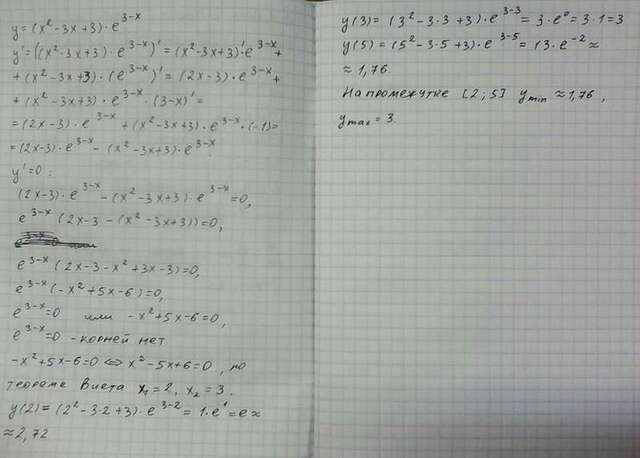 y=(x²-3x+3)·e^(3-x)
y'=((x²-3x+3)·e^(3-x))'=(x²-3x+3)'·e^(3-x)+
+(x²-3x+3)·(e^(3-x))'=(2x-3)·e^(3-x)+
+(x²-3x+3)·e^(3-x)·(3-x)'=
=(2x-3)·e^(3-x)+(x²-3x+3)·e^(3-x)·(-1)=
=(2x-3)·e^(3-x)-(x²-3x+3)·e^(3-x).
y'=0:
(2x-3)·e^(3-x)-(x²-3x+3)·e^(3-x)=0,
e^(3-x)(2x-3-(x²-3x+3))=0,
e^(3-x)(2x-3-x²+3x-3)=0,
e^(3-x)(-x²+5x-6)=0,
e^(3-x)=0 или -x²+5x-6=0,
e^(3-x)=0 - корней нет
-x²+5x-6=0 ⇔ x²-5x+6=0, по
теореме Виета x₁=2, x₂=3.
y(2)=(2²-3·2+3)·e^(3-2)=1·e¹=e≈
≈2,72
y(3)=(3²-3·3+3)·e^(3-3)=3·e⁰=3·1=3
y(5)=(5²-3·5+3)·e^(3-5)=13·e^(-2)≈
≈1,76.
На промежутке [2;5] y min ≈1,76,
y max=3.